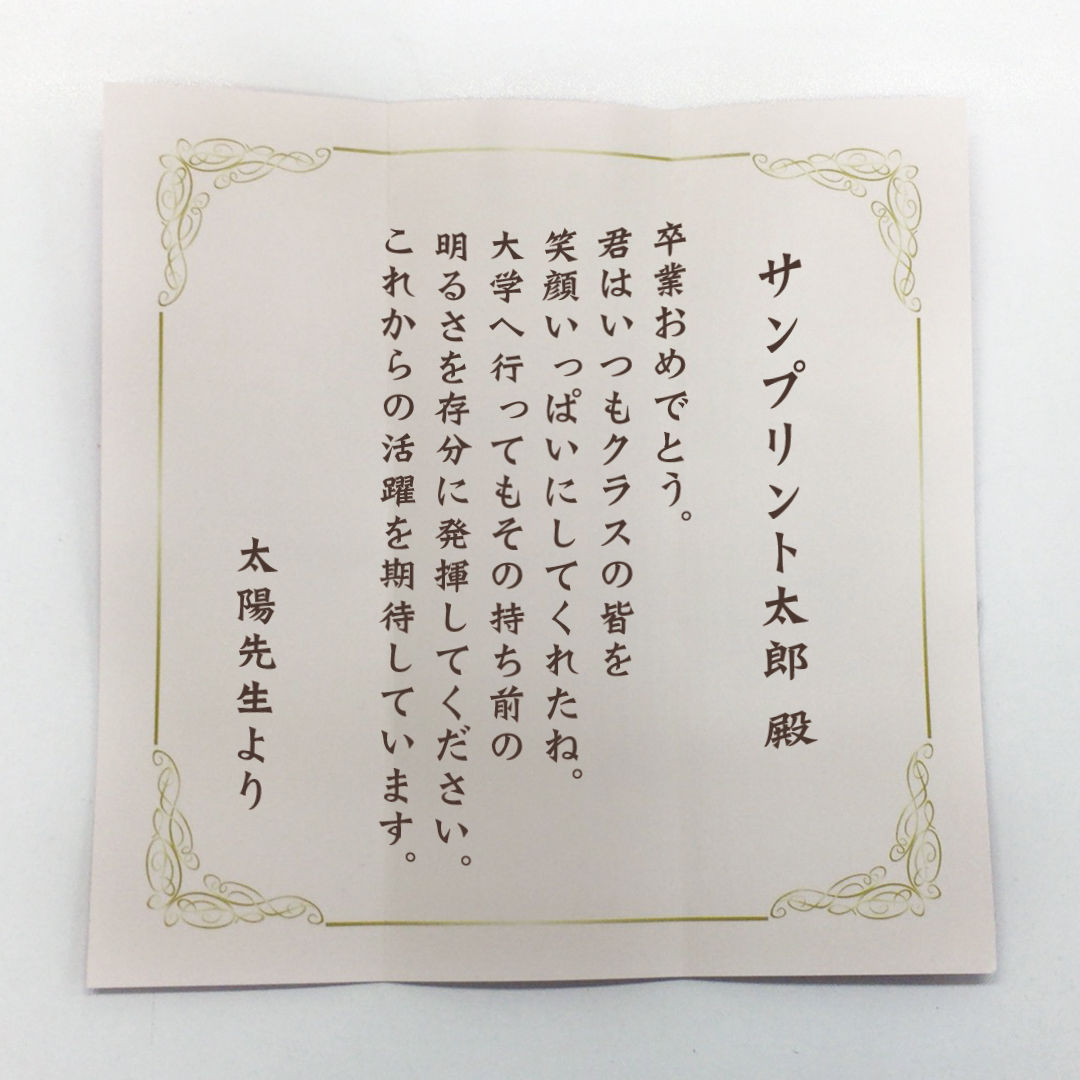 サンプリント太郎 殿
卒業おめでとう。
君はいつもクラスの皆を
笑顔いっぱいにしてくれたね。
大学へ行ってもその持ち前の
明るさを存分に発揮してください。
これからの活躍を期待しています。
太陽先生より